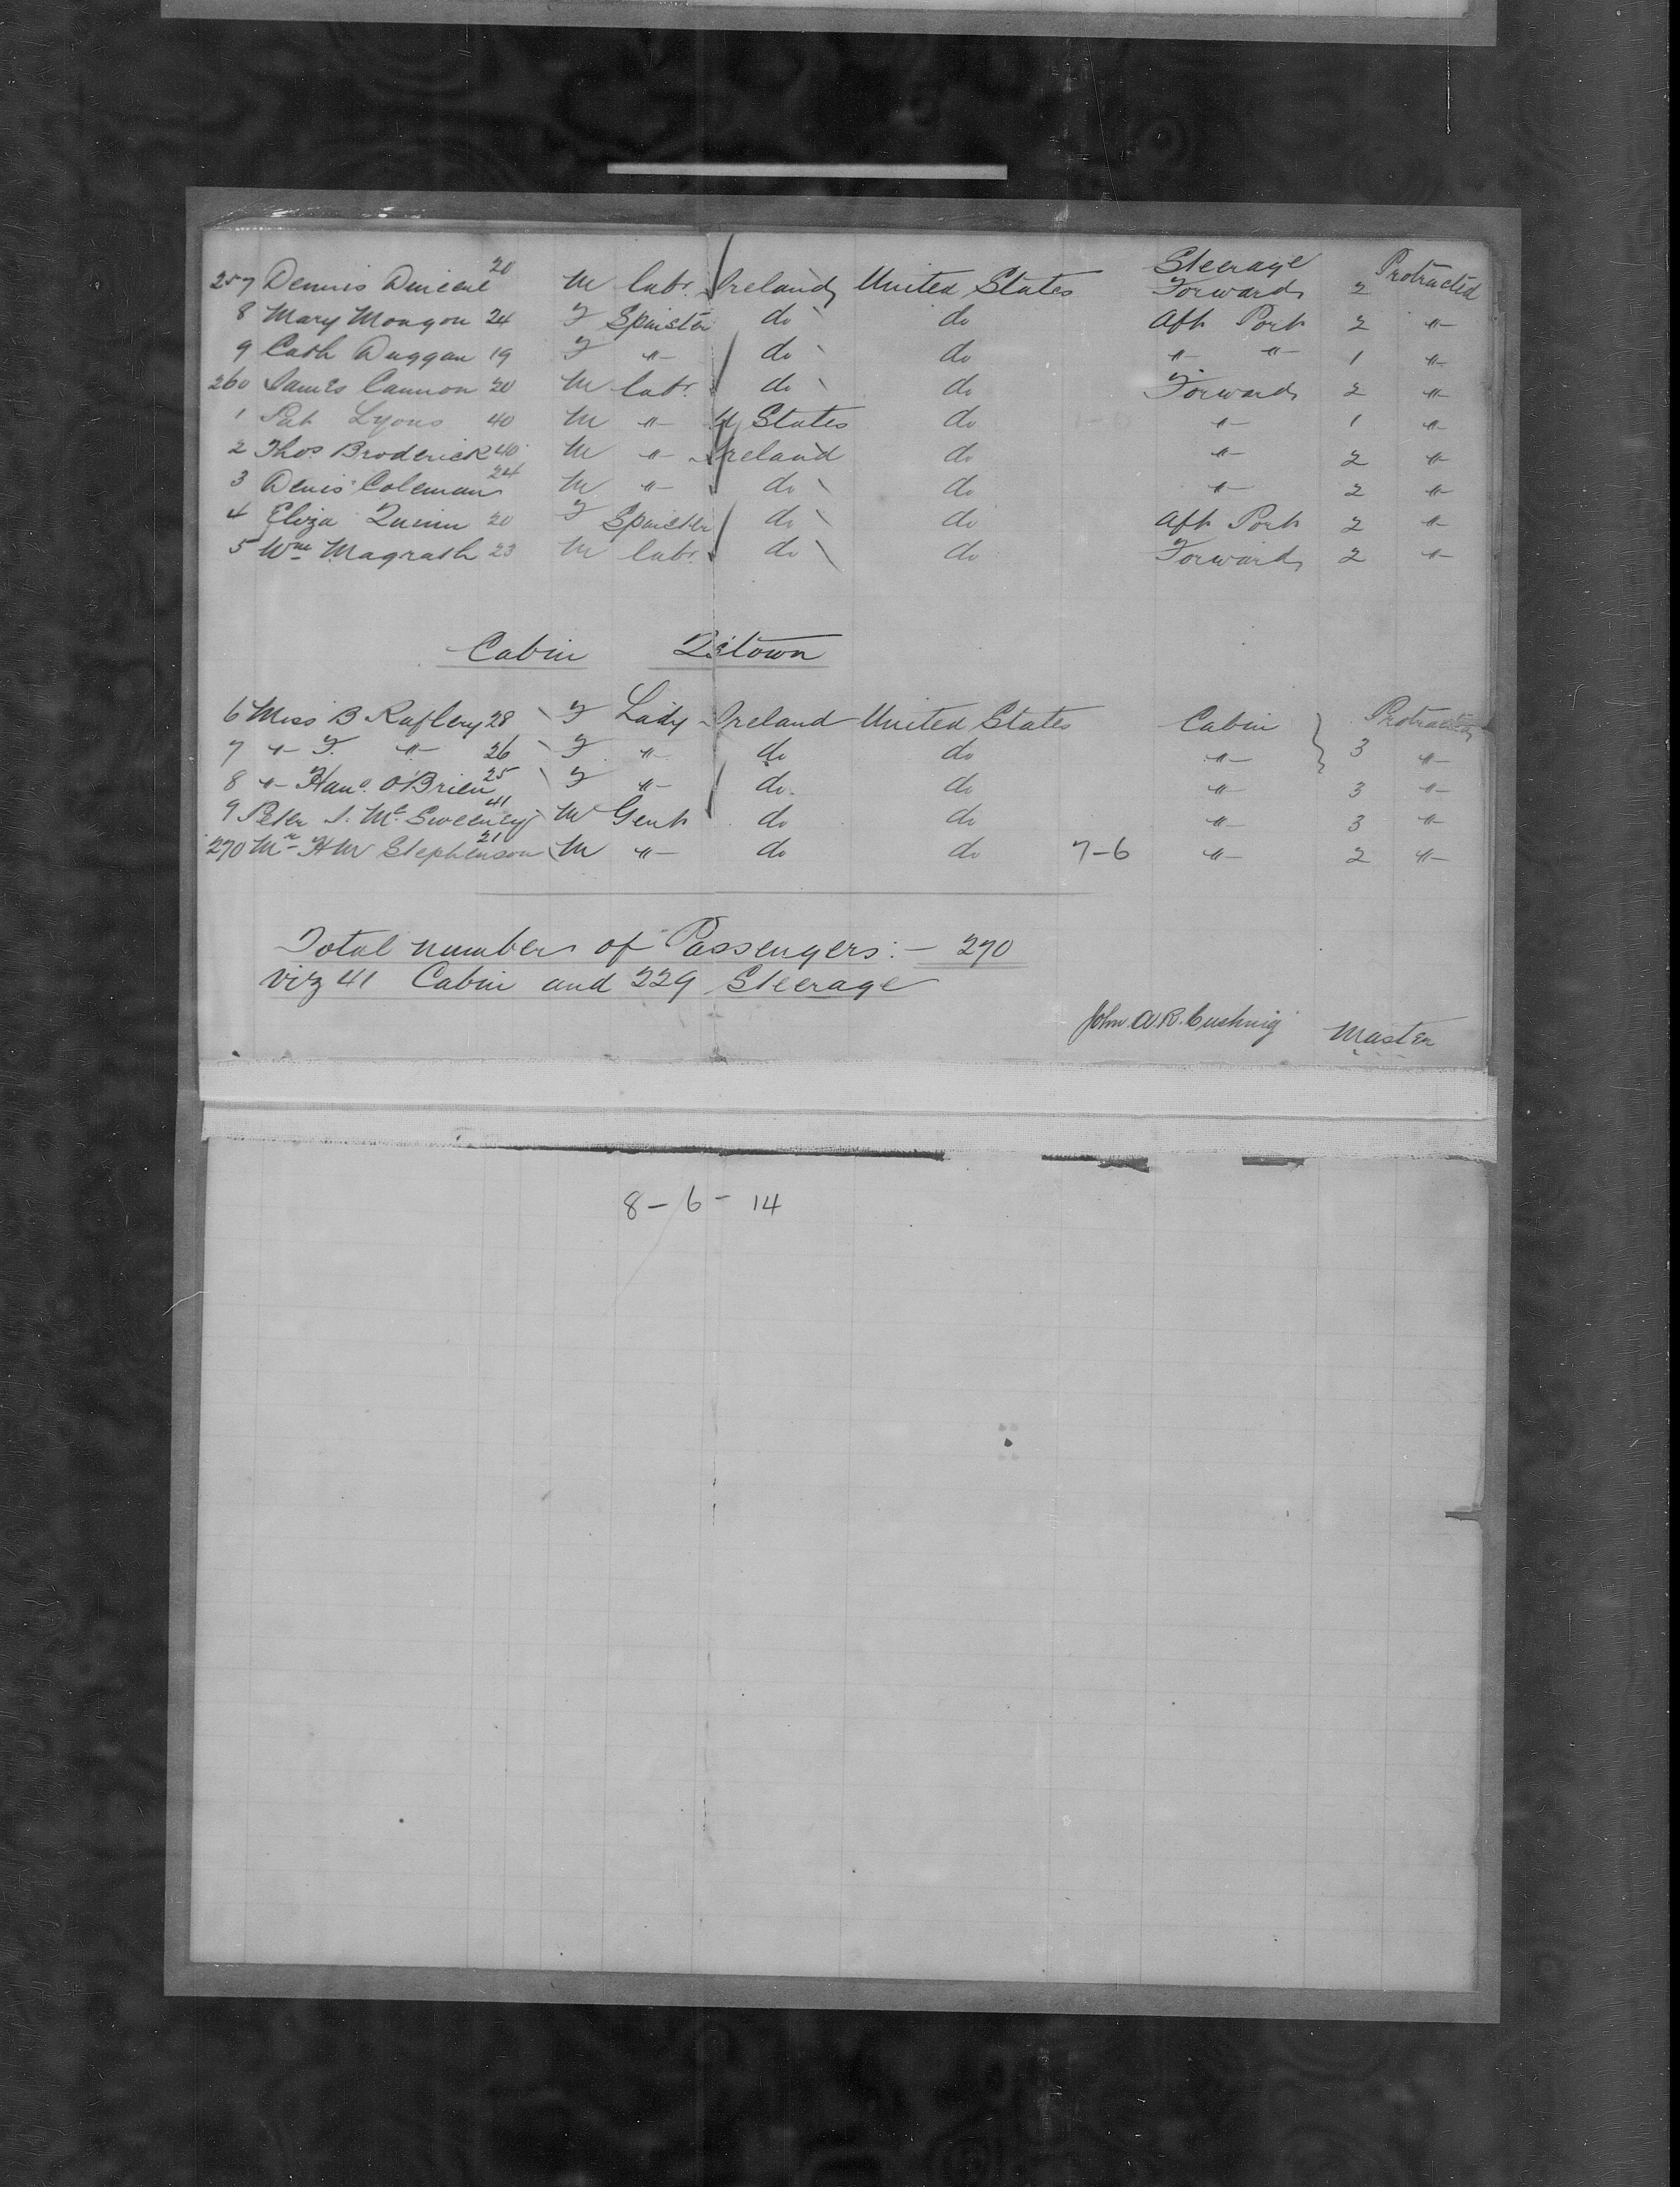 257 Dennis 20 M labr. Ireland United States Steerage Forward 2 Protracted
8 Mary Mongon 24 F Spinster do do Aft Port 2 "
9 Cath Duggan 19 F " do do " " 1 "
260 James Cannon 20 M labr. do do Forward 2 "
1 Pat Lyons 40 M " U States do " 1 "
2 Thos Broderick 40 M " Ireland do " 2 "
3 Denis Coleman 24 M " do do " 2 "
4 Eliza Quinn 20 F Spinster do do Aft Port 2 "
5 Wm Magrath 23 M labr. do do Forward 2 "
Cabin Q'stown
6 Miss B Raftery 28 F Lady Ireland United States Cabin } Protracted
7 " F. " 26 F " do do " 3 "
8 " Hano. O'Brien 25 F " do. do " 3 "
9 Peter J. McSweeney 41 M Gent do do " 3 "
270 Mr HW Stephenson 21 M " do do 7-6 " 2 "
Total number of Passengers:- 270
viz 41 Cabin and 229 Steerage
John A.R. Cushnig Master
8-6-14